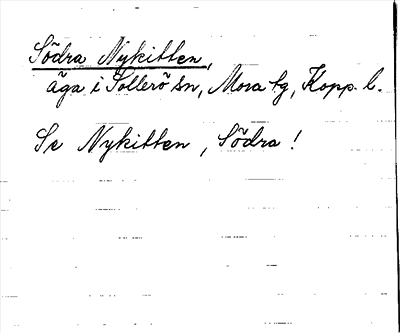 Södra Nykitten,
äga i Sollerö sn, Mora tg, Kopp. l.
Se Nykitten, Södra!